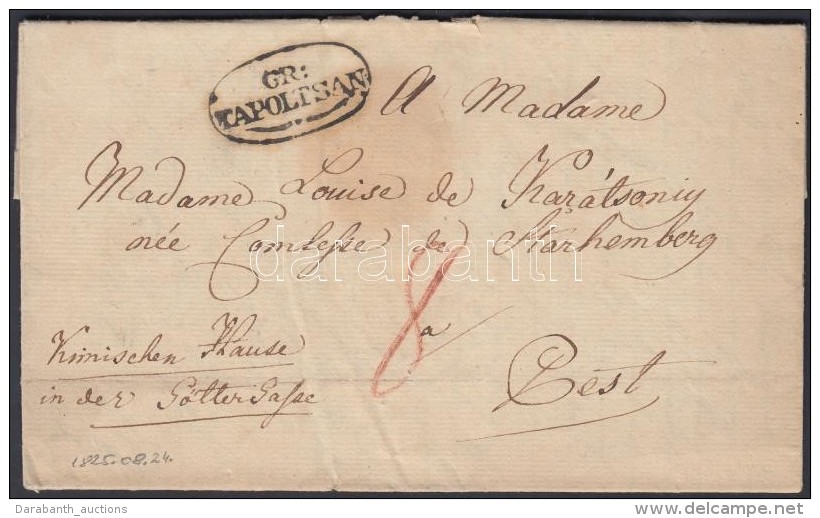 GR:
TAPOLTSAN
A Madame
Madame Louise de Karátsoniy
née Comtesse de Starhemberg
8
a
Pest
Kinischen Hause
in der Götter Gasse
1825.08.24.
darabanth
Darabanth_auctions
delcampe.net